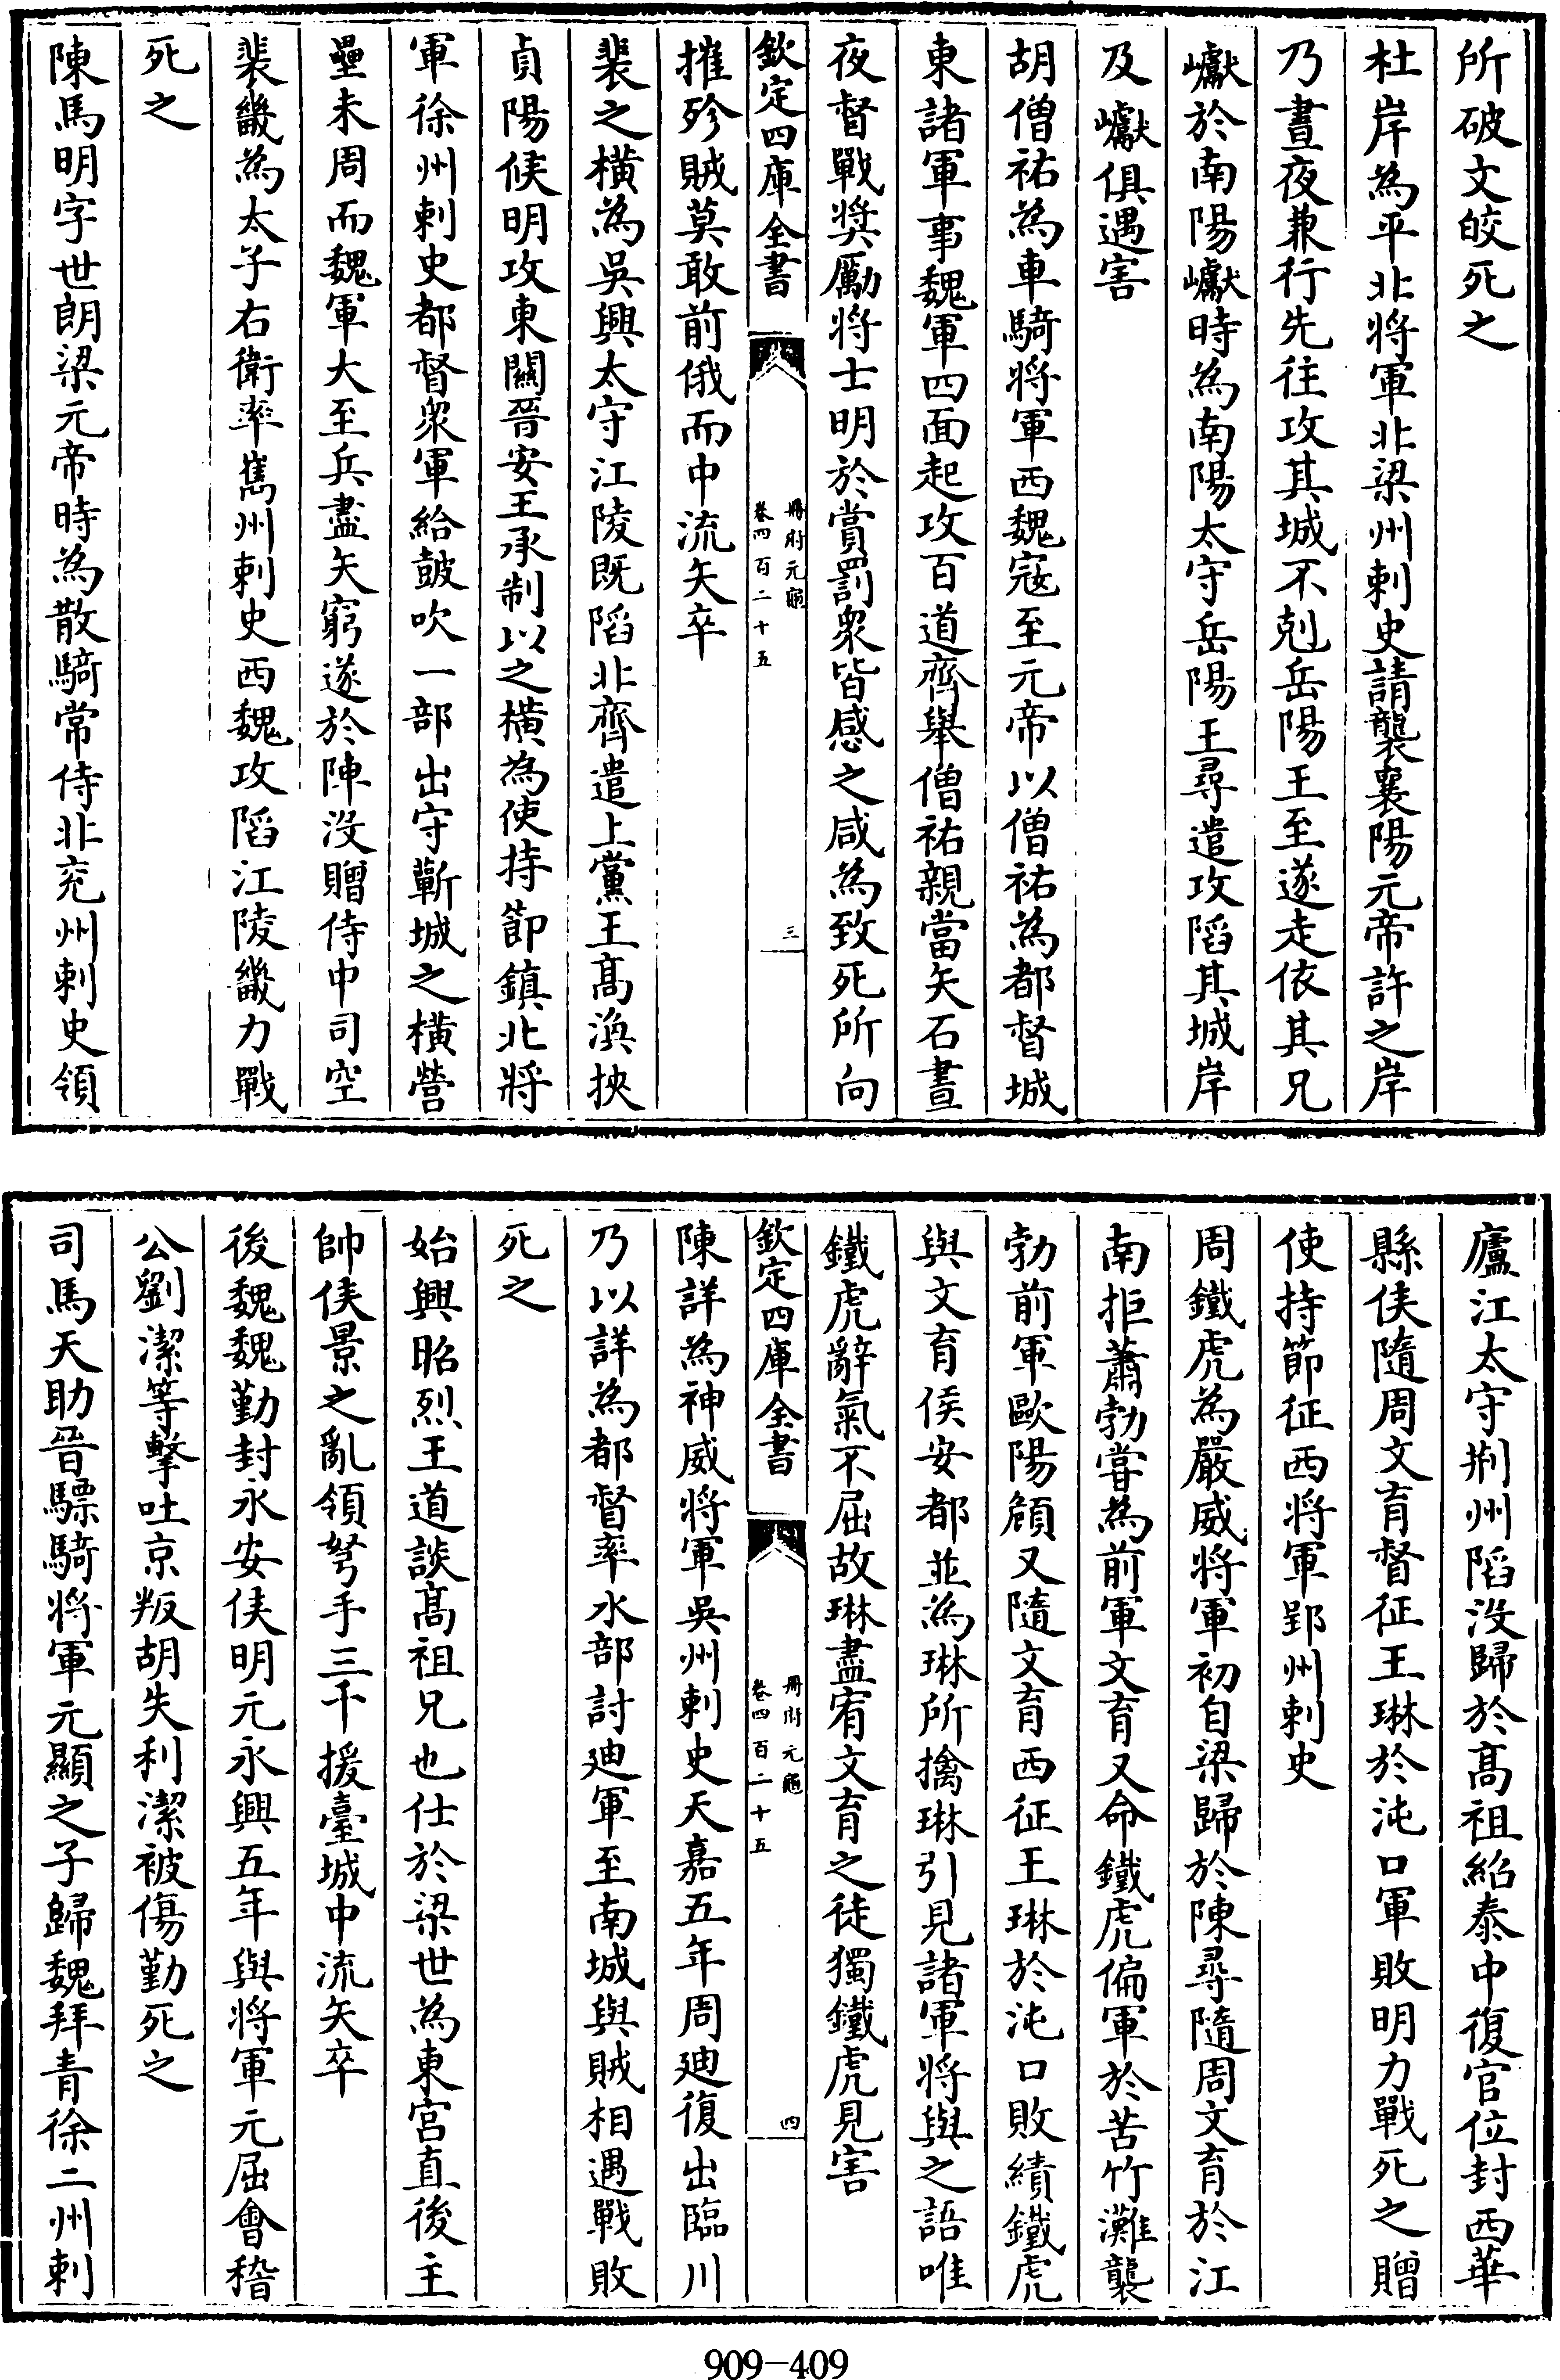 所破文皎死之
杜岸為平北將軍北梁州刺史請襲襄陽元帝許之岸
乃晝夜兼行先往攻其城不剋岳陽王至遂走依其兄
巘於南陽巘時為南陽太守岳陽王尋遣攻陷其城岸
及巘俱遇害
胡僧祐為車騎將軍西魏宼至元帝以僧祐為都督城
東諸軍事魏軍四面起攻百道齊舉僧祐親當矢石晝
夜督戰奬厲將士明於賞罰衆皆感之咸為致死所向
欽定四庫全書
冊府元龜
卷四百二十五
三
摧殄賊莫敢前俄而中流矢卒
裴之横為吳興太守江陵既陷北齊遣上黨王髙渙挾
貞陽侯明攻東關晉安王承制以之横為使持節鎮北將
軍徐州刺史都督衆軍給鼓吹一部出守蘄城之横營
壘未周而魏軍大至兵盡矢窮遂於陣没贈侍中司空
裴畿為太子右衛率雟州刺史西魏攻陷江陵畿力戰
死之
陳馬明字世朗梁元帝時為散騎常侍北兖州刺史領
廬江太守荆州陷没歸於髙祖紹泰中復官位封西華
縣侯隨周文育督征王琳於沌口軍敗明力戰死之贈
使持節征西將軍郢州刺史
周鐵虎為嚴威將軍初自梁歸於陳尋隨周文育於江
南拒蕭勃嘗為前軍文育又命鐵虎偏軍於苦竹灘襲
勃前軍歐陽頠又隨文育西征王琳於沌口敗績鐵虎
與文育侯安都並為琳所擒琳引見諸軍將與之語唯
鐵虎辭氣不屈故琳盡宥文育之徒獨鐵虎見害
欽定四庫全書
冊府元龜
卷四百二十五
四
陳詳為神威將軍吳州刺史天嘉五年周廸復出臨川
乃以詳為都督率水部討廸軍至南城與賊相遇戰敗
死之
始興昭烈王道談髙祖兄也仕於梁世為東宫直後主
帥侯景之亂領弩手三千援臺城中流矢卒
後魏魏勤封永安侯明元永興五年與將軍元屈會稽
公劉潔等擊吐京叛胡失利潔被傷勤死之
司馬天助晉驃騎將軍元顯之子歸魏拜青徐二州刺
909-409